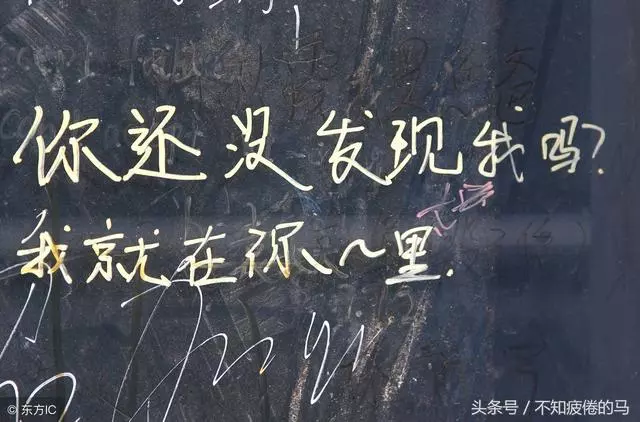 你还没发现我吗?
我就在你心里.
© 东方IC
头条号 / 不知疲倦的马